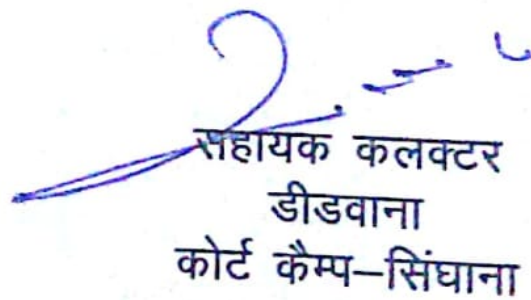 सहायक कलक्टर
डीडवाना
कोर्ट कैम्प–सिंघाना